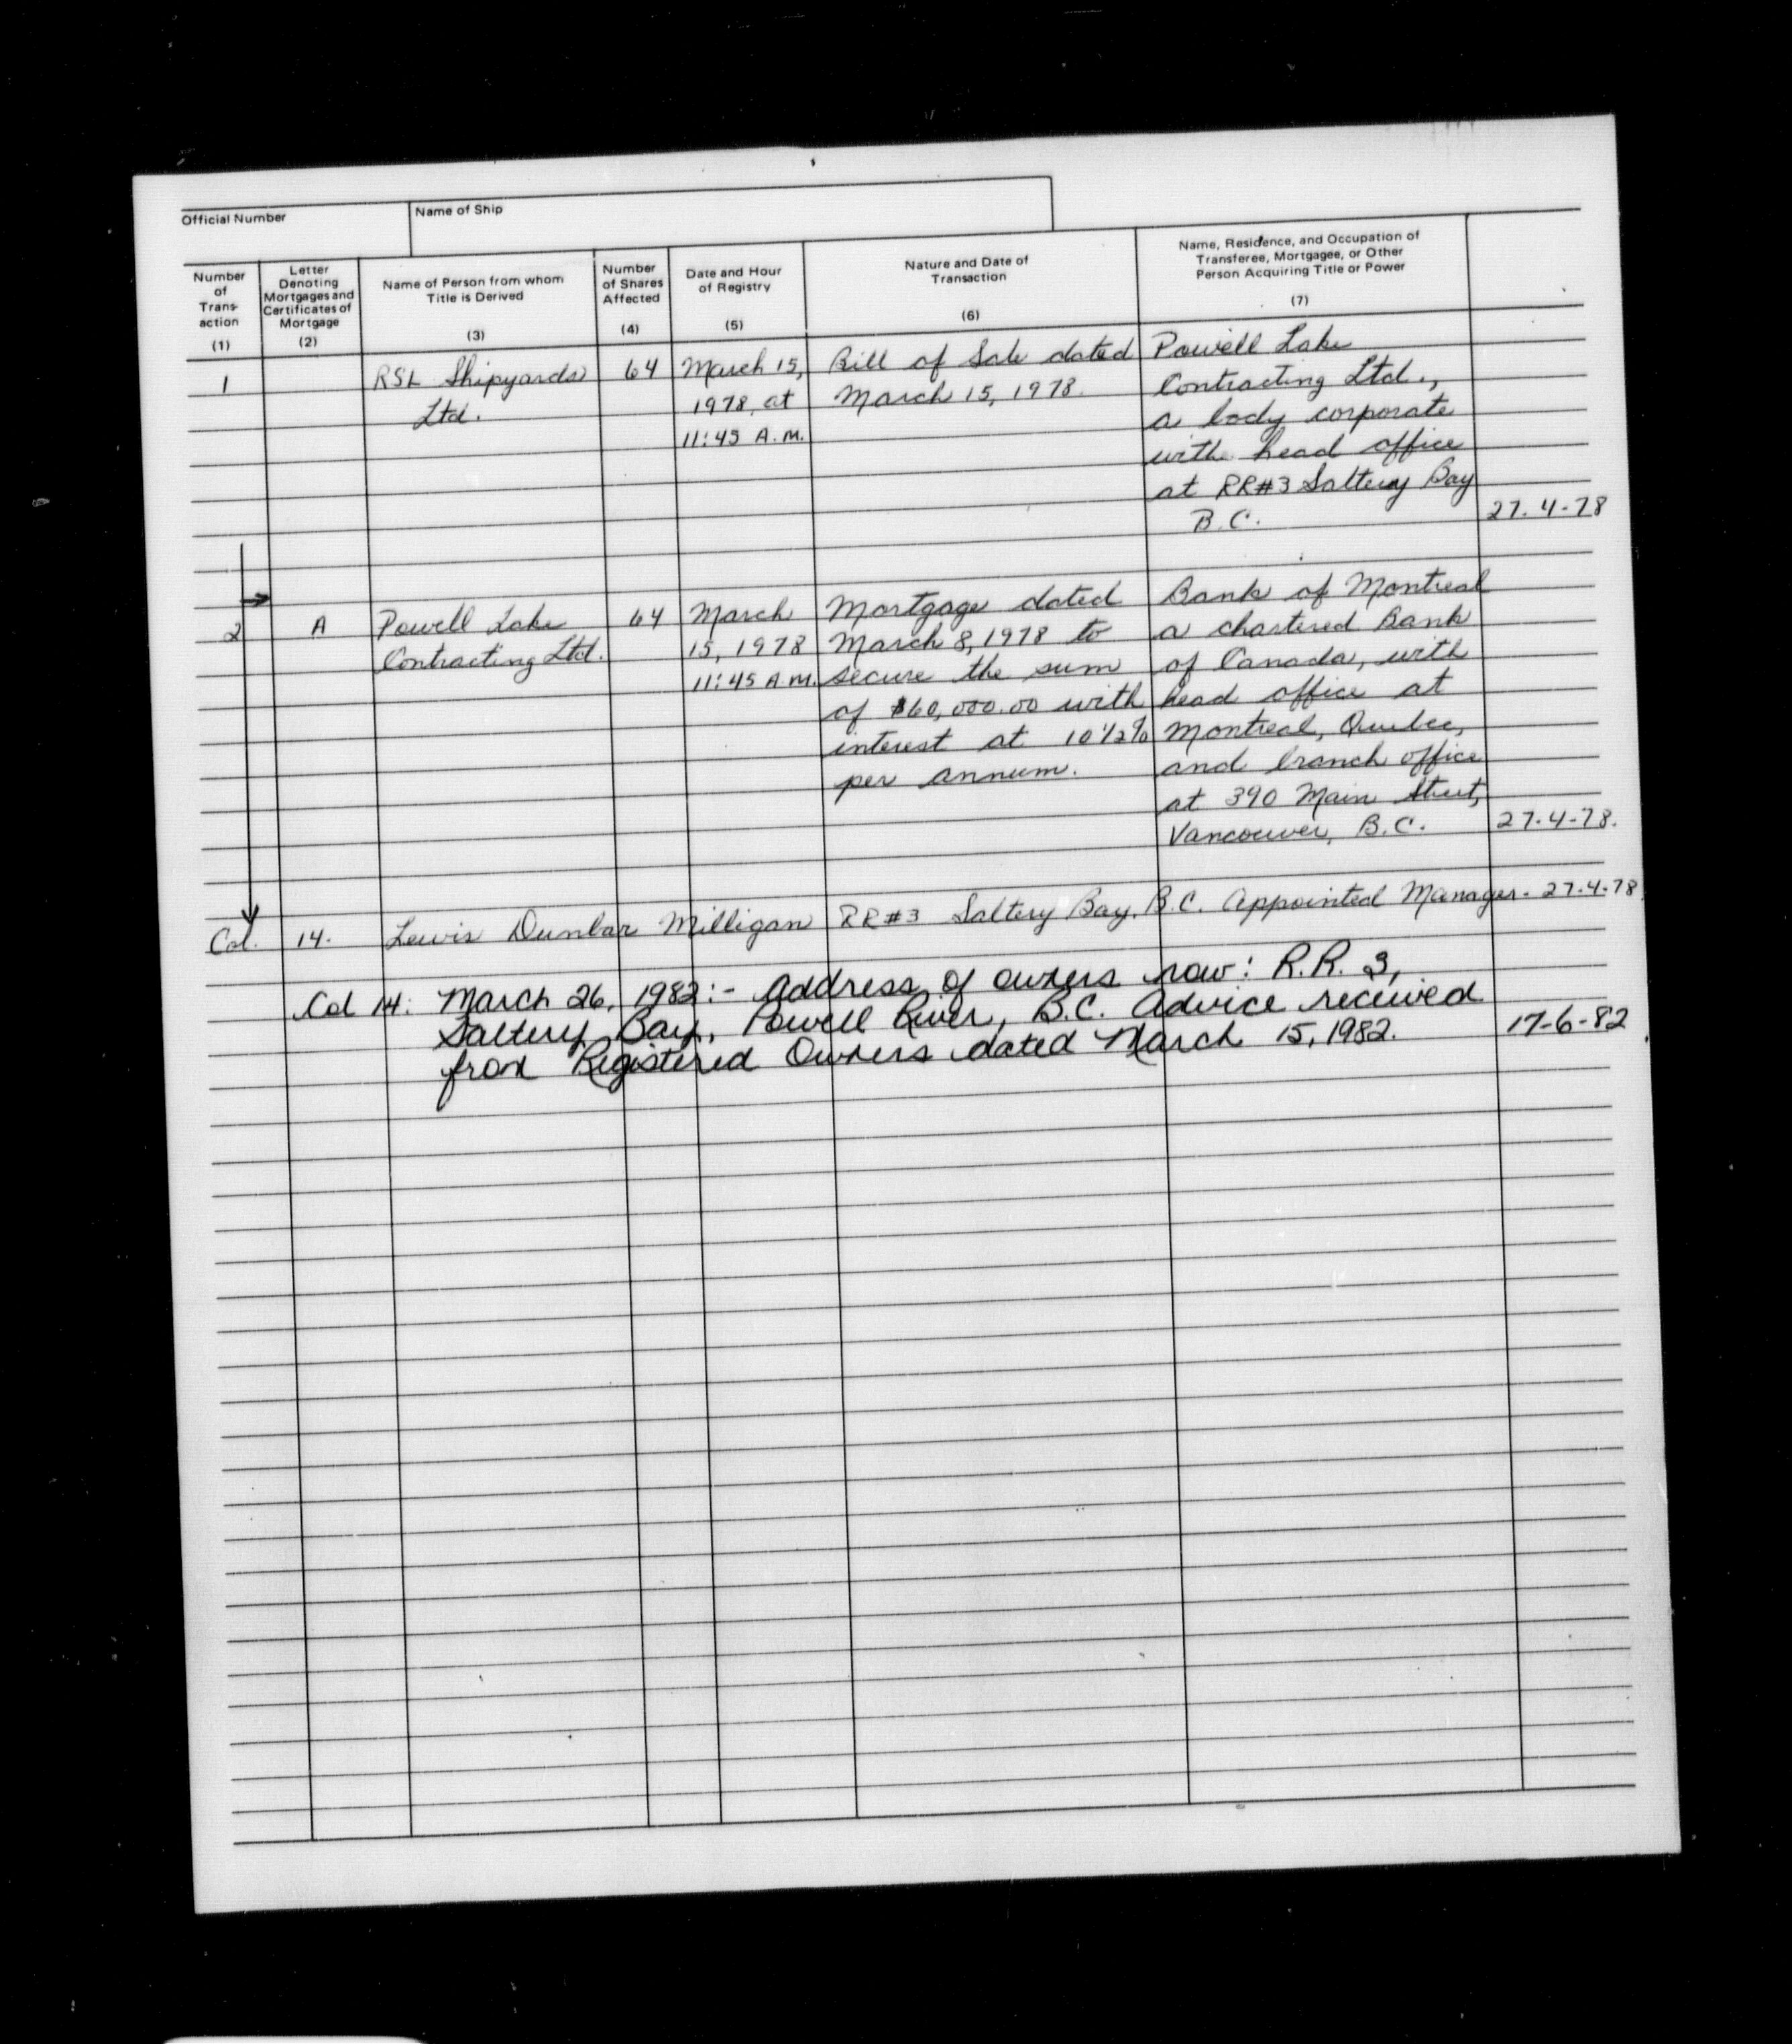 Official Number
Name of Ship
Number of Trans- action (1)
Letter Denoting Mortgages and Certificates of Mortgage (2)
Name of Person from whom Title is Derived (3)
Number of Shares Affected (4)
Date and Hour of Registry (5)
Nature and Date of Transaction (6)
Name, Residence, and Occupation of Transferee, Mortgagee, or Other Person Acquiring Title or Power (7)
1 RSL Shipyards 64 March 15, Bill of Sale dated Powell Lake
Ltd. 1978, at March 15, 1978. Contracting Ltd.,
11:45 A.M. a body corporate
with head office
at RR#3 Saltery Bay
B.C. 27.4-78
2 A Powell Lake 64 March Mortgage dated Bank of Montreal
Contracting Ltd. 15, 1978 March 8, 1978 to a chartered Bank
11:45 A.M. secure the sum of Canada, with
of $60,000.00 with head office at
interest at 10 1/2% Montreal, Quebec,
per annum. and branch office
at 390 Main Street,
Vancouver, B.C. 27-4-78.
Col. 14. Lewis Dunbar Milligan RR#3 Saltery Bay, B.C. Appointed Manager - 27-4-78
Col 14: March 26, 1982:- Address of owners now: R.R. 3,
Saltery Bay, Powell River, B.C. Advice received
from Registered Owners dated March 15, 1982. 17-6-82